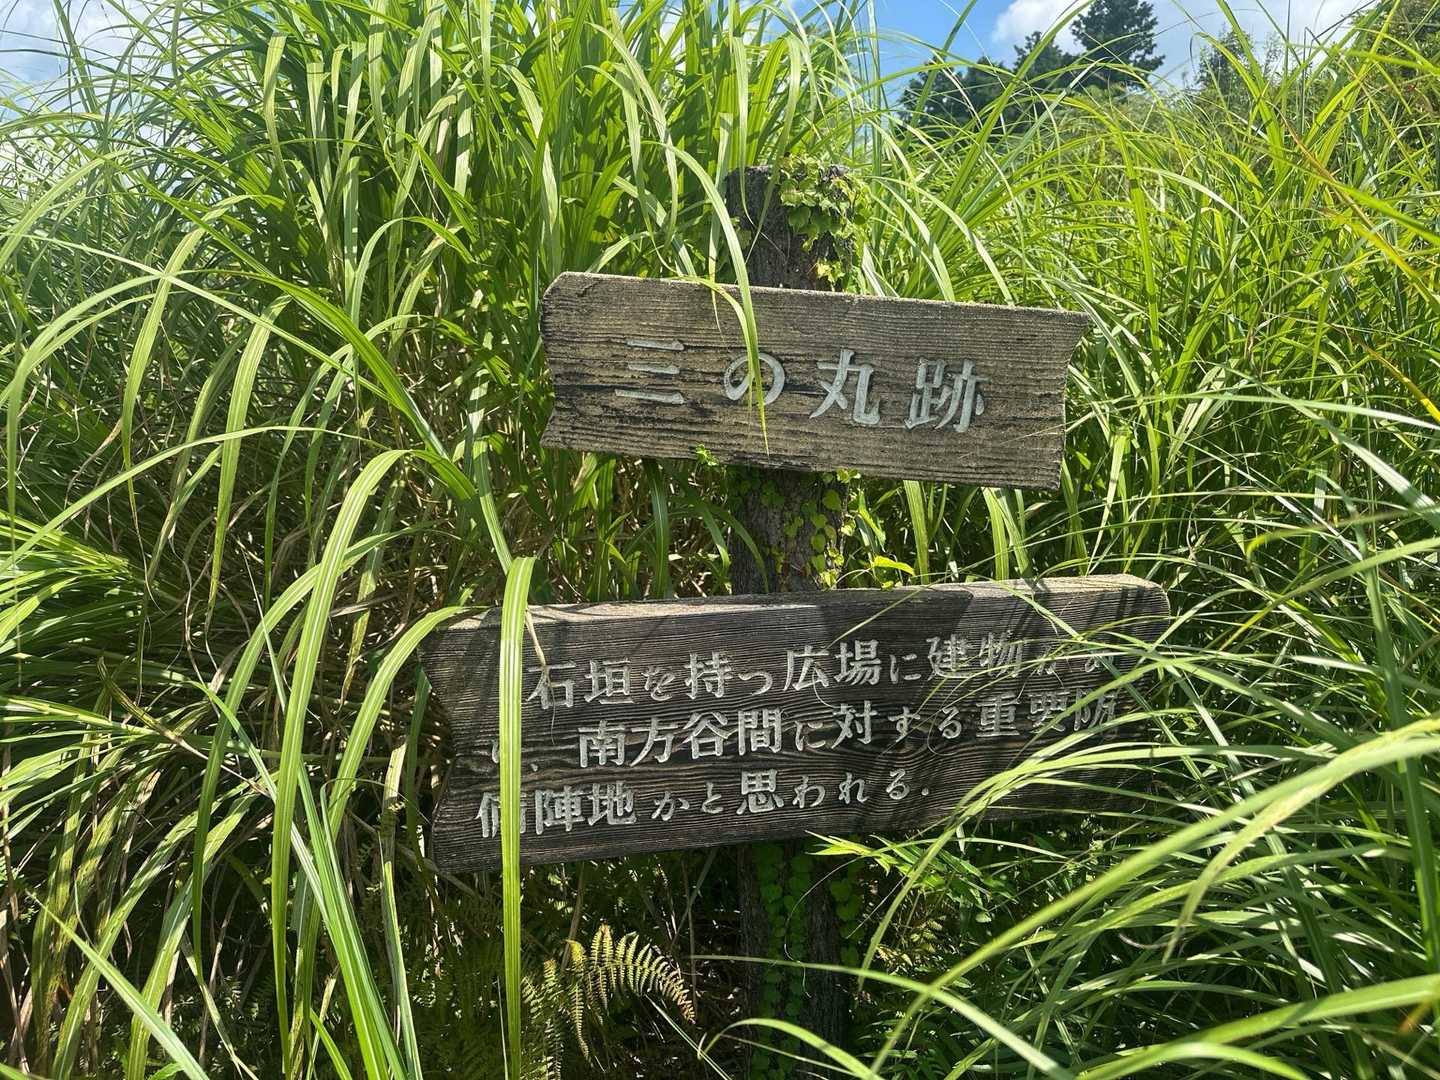 三の丸跡
石垣を持つ広場に建物があ
り、南方谷間に対する重要防
備陣地かと思われる.